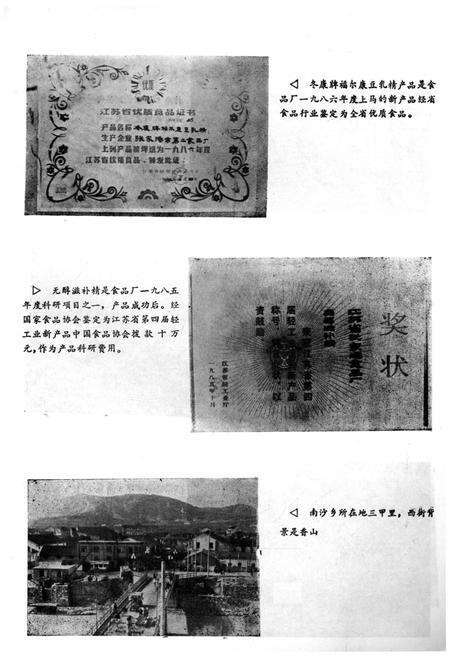 优质
江苏省优质食品证书
产品名称 冬康牌福尔康豆乳精
生产企业 张家港市第二食品厂
上列产品被评选为一九八六年度
江苏省优质食品,特发此证。
◁ 冬康牌福尔康豆乳精产品是食
品厂一九八六年度上马的新产品经省
食品行业鉴定为全省优质食品。
▷ 无醇滋补精是食品厂一九八五
年度科研项目之一,产品成功后。经
国家食品协会鉴定为江苏省第四届轻
工业新产品中国食品协会拨款十万
元,作为产品科研费用。
奖状
届轻工
称号
资鼓励
江苏省轻工业厅
一九八五年十月
◁ 南沙乡所在地三甲里,西街背
景是香山